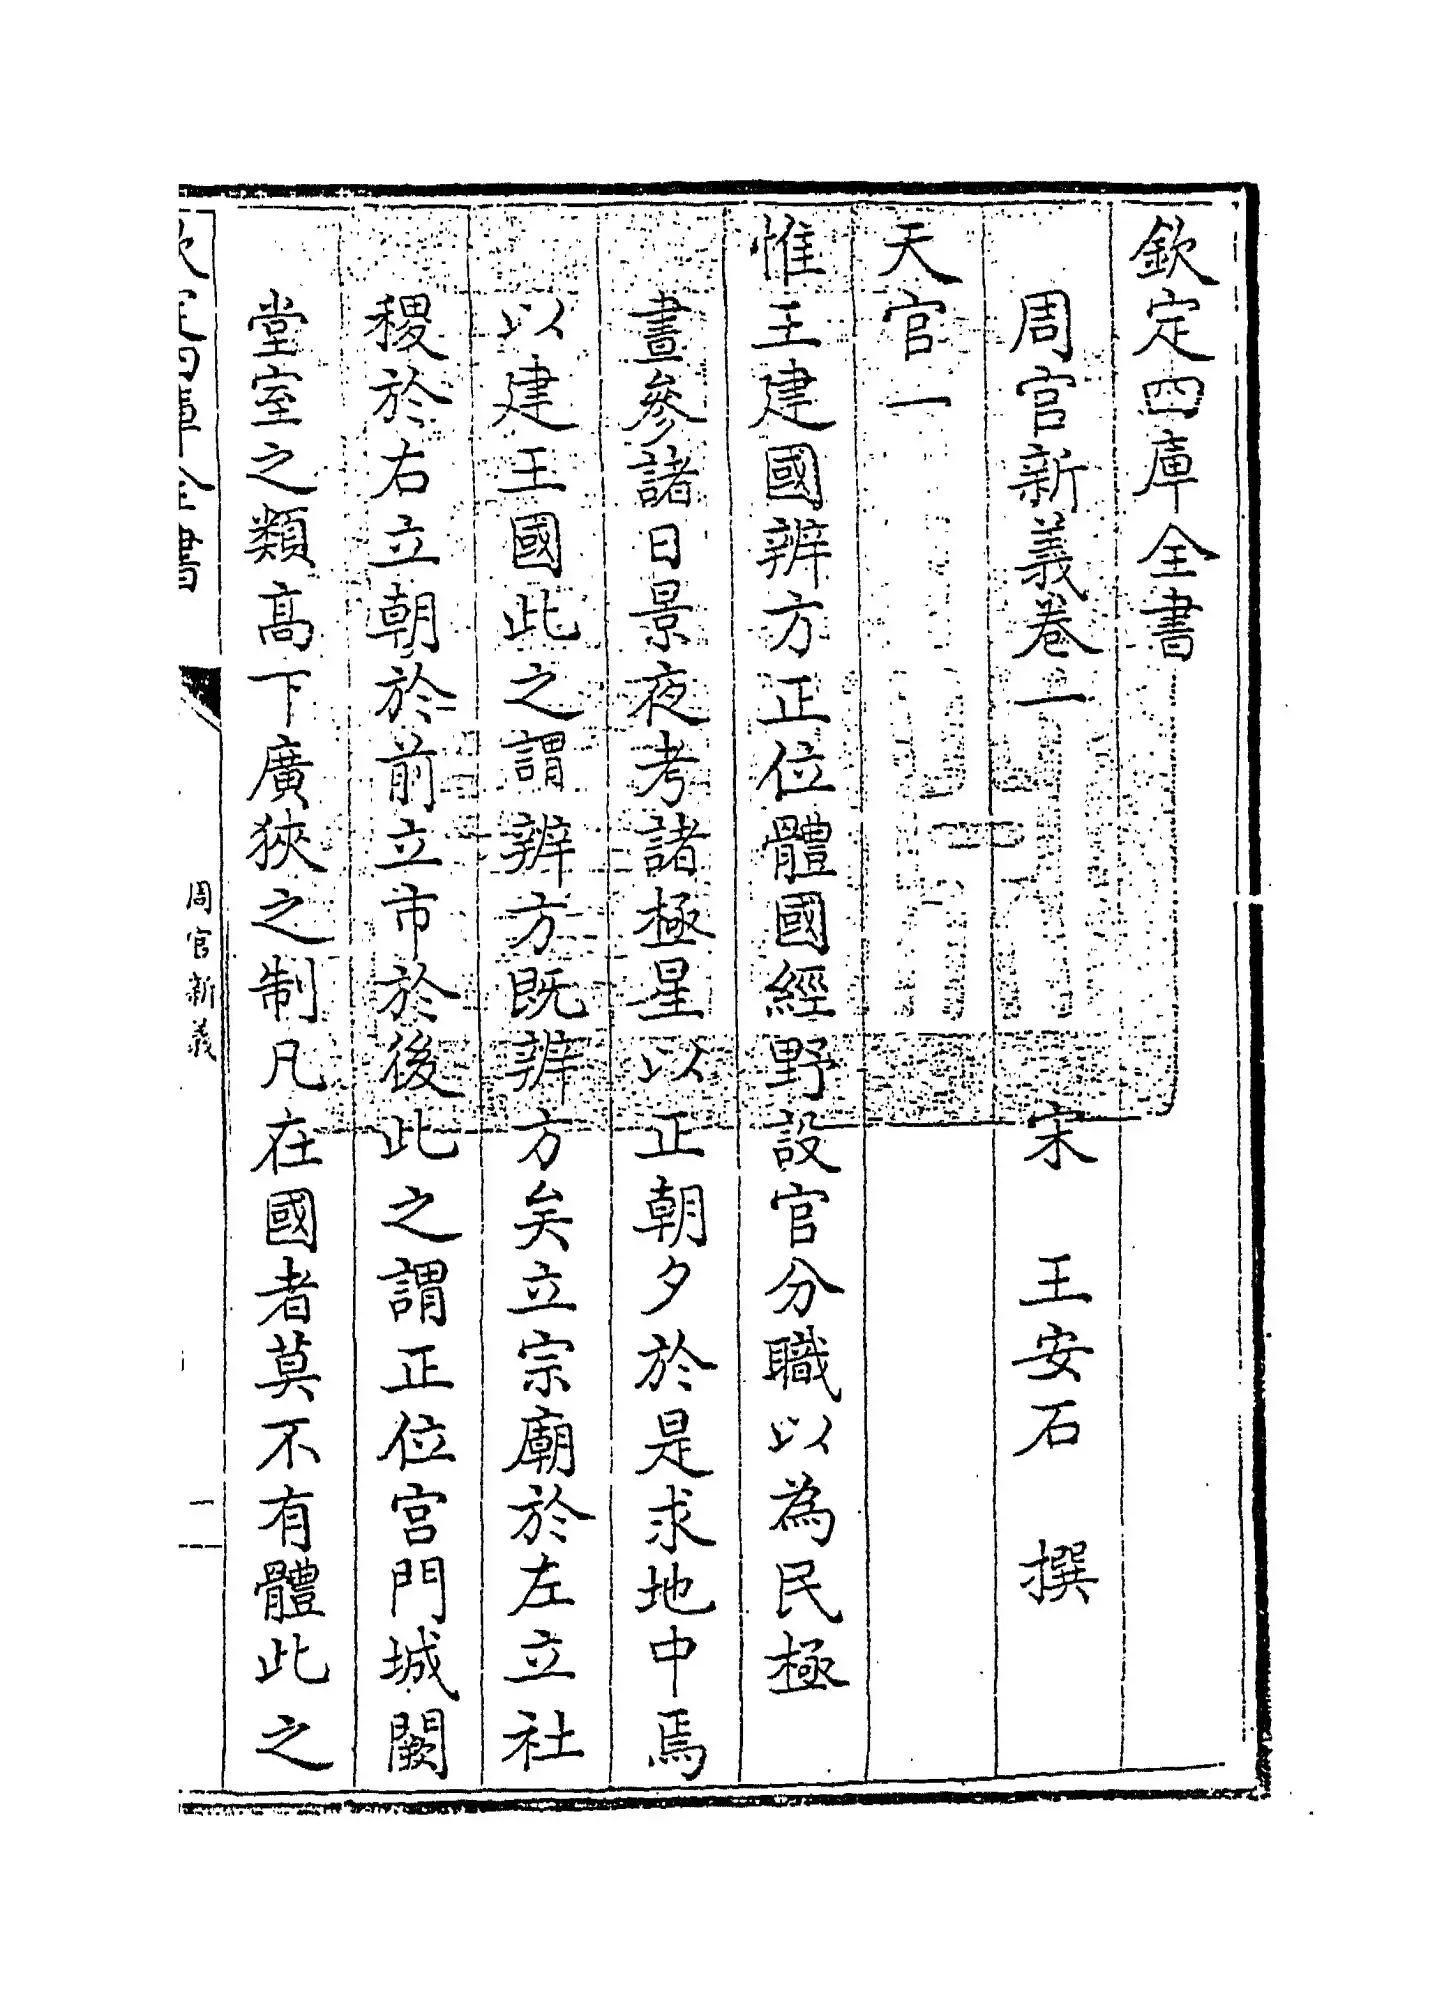 欽定四庫全書
周官新義卷一 宋 王安石 撰
天官一
惟王建國辨方正位體國經野設官分職以為民極
晝參諸日景夜考諸極星以正朝夕於是求地中焉
以建王國此之謂辨方既辨方矣立宗廟於左立社
稷於右立朝於前立市於後此之謂正位宮門城闕
堂室之類高下廣狹之制凡在國者莫不有體此之
欽定四庫全書
周官新義
一